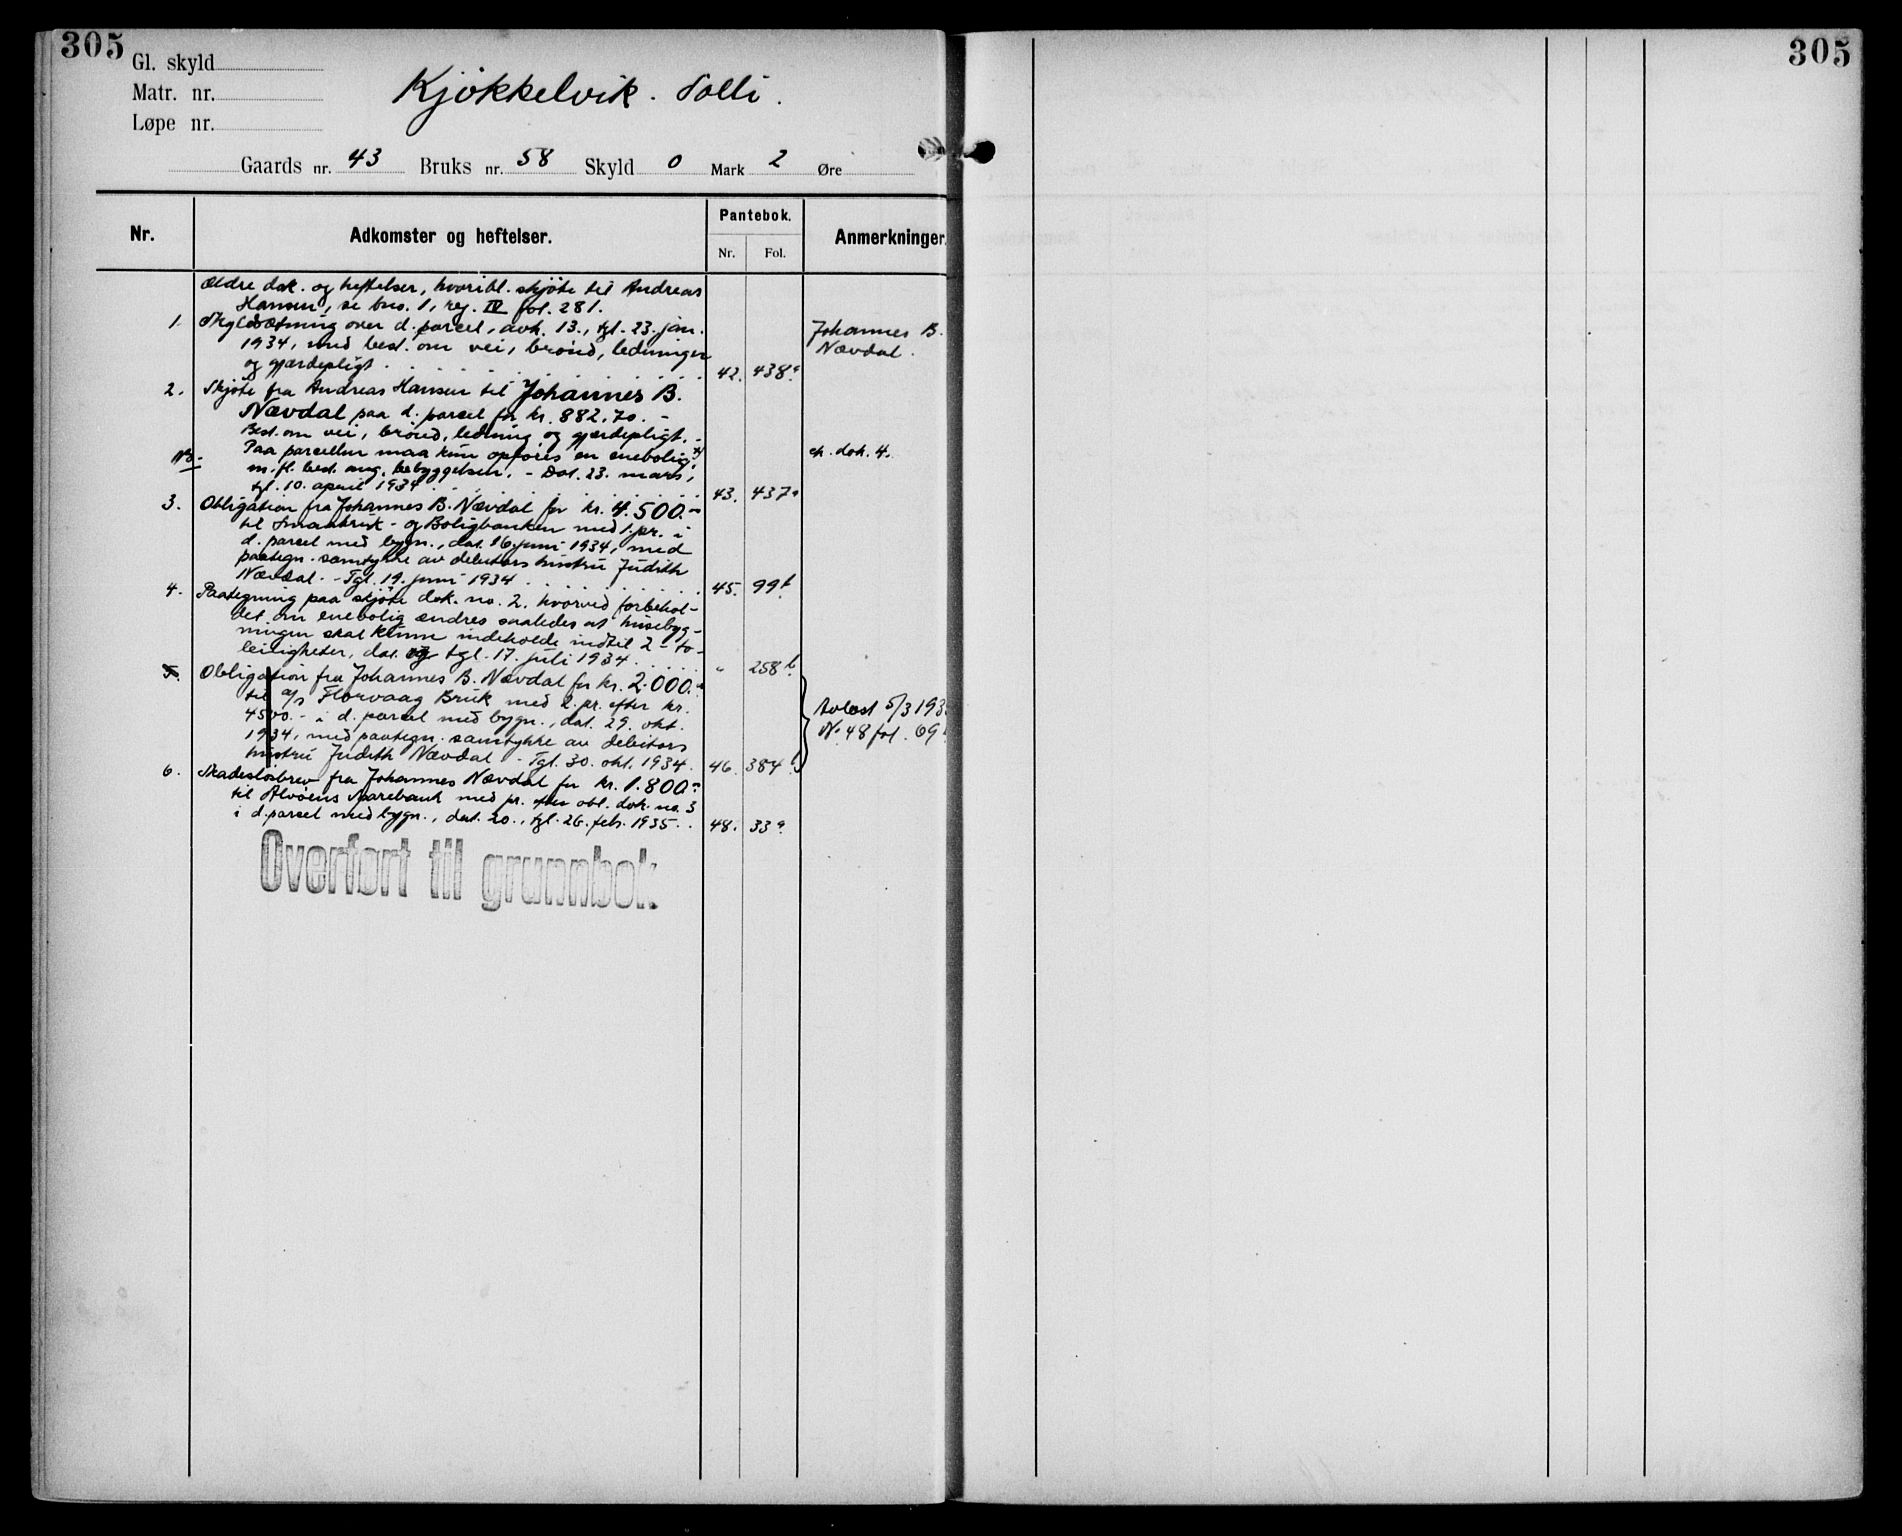 305
305
Gl. skyld
Matr. nr.
Løpe nr.
Kjøkkelvik. Solli.
Gaards nr. 43 Bruks nr. 58 Skyld 0 Mark 2 Øre
Nr. Adkomster og heftelser. Pantebok. Anmerkninger.
Nr. Fol.
Ældre dok. og heftelser, hvoribl. skjøte til Andreas
Hansen, se bno. 1, reg. IV fol. 281.
1. Skyldsætning over d. parcel, avh. 13., tgl. 23. jan.
1934, med best. om vei, brønd, ledninger
og gjærdepligt. 42. 438a
Johannes B.
Nævdal.
2. Skjøte fra Andreas Hansen til Johannes B.
Nævdal paa d. parcel for kr. 882,70. -
Best. om vei, brønd, ledning og gjærdepligt. -
NB. Paa parcellen maa kun opføres en enebolig, x)
m. fl. best. ang. bebyggelsen. - Dat. 23. mars,
tgl. 10. april 1934. 43. 437a
dok. 4.
3. Obligation fra Johannes B. Nævdal for kr. 4.500.-
til Smaabruk- og Boligbanken med 1. pr. i
d. parcel med bygn., dat. 16. juni 1934, med
paategn. samtykke av debitors hustru Judith
Nævdal. - Tgl. 19. juni 1934. 45. 99b
4. Paategning paa skjøte dok. no. 2, hvorved forbehol-
det om enebolig ændres saaledes at husebyg-
ningen skal kunne indeholde indtil 2 - to -
leiligheter, dat. og tgl. 17. juli 1934. " 258b
5. Obligation fra Johannes B. Nævdal for kr. 2.000.-
til a/s Florvaag Bruk med 2. pr. efter kr.
4500.- i d. parcel med bygn., dat. 29. okt.
1934, med paategn. samtykke av debitors
hustru Judith Nævdal. - Tgl. 30. okt. 1934. 46. 384b
Avlæst 5/3 193
No. 48 fol. 69
6. Skadesløsbrev fra Johannes Nævdal for kr. 1.800.-
til Alvøens Sparebank med pr. efter obl. dok. no. 3
i d. parcel med bygn., dat. 20., tgl. 26. feb. 1935. 48. 33a
Overført til grunnbok